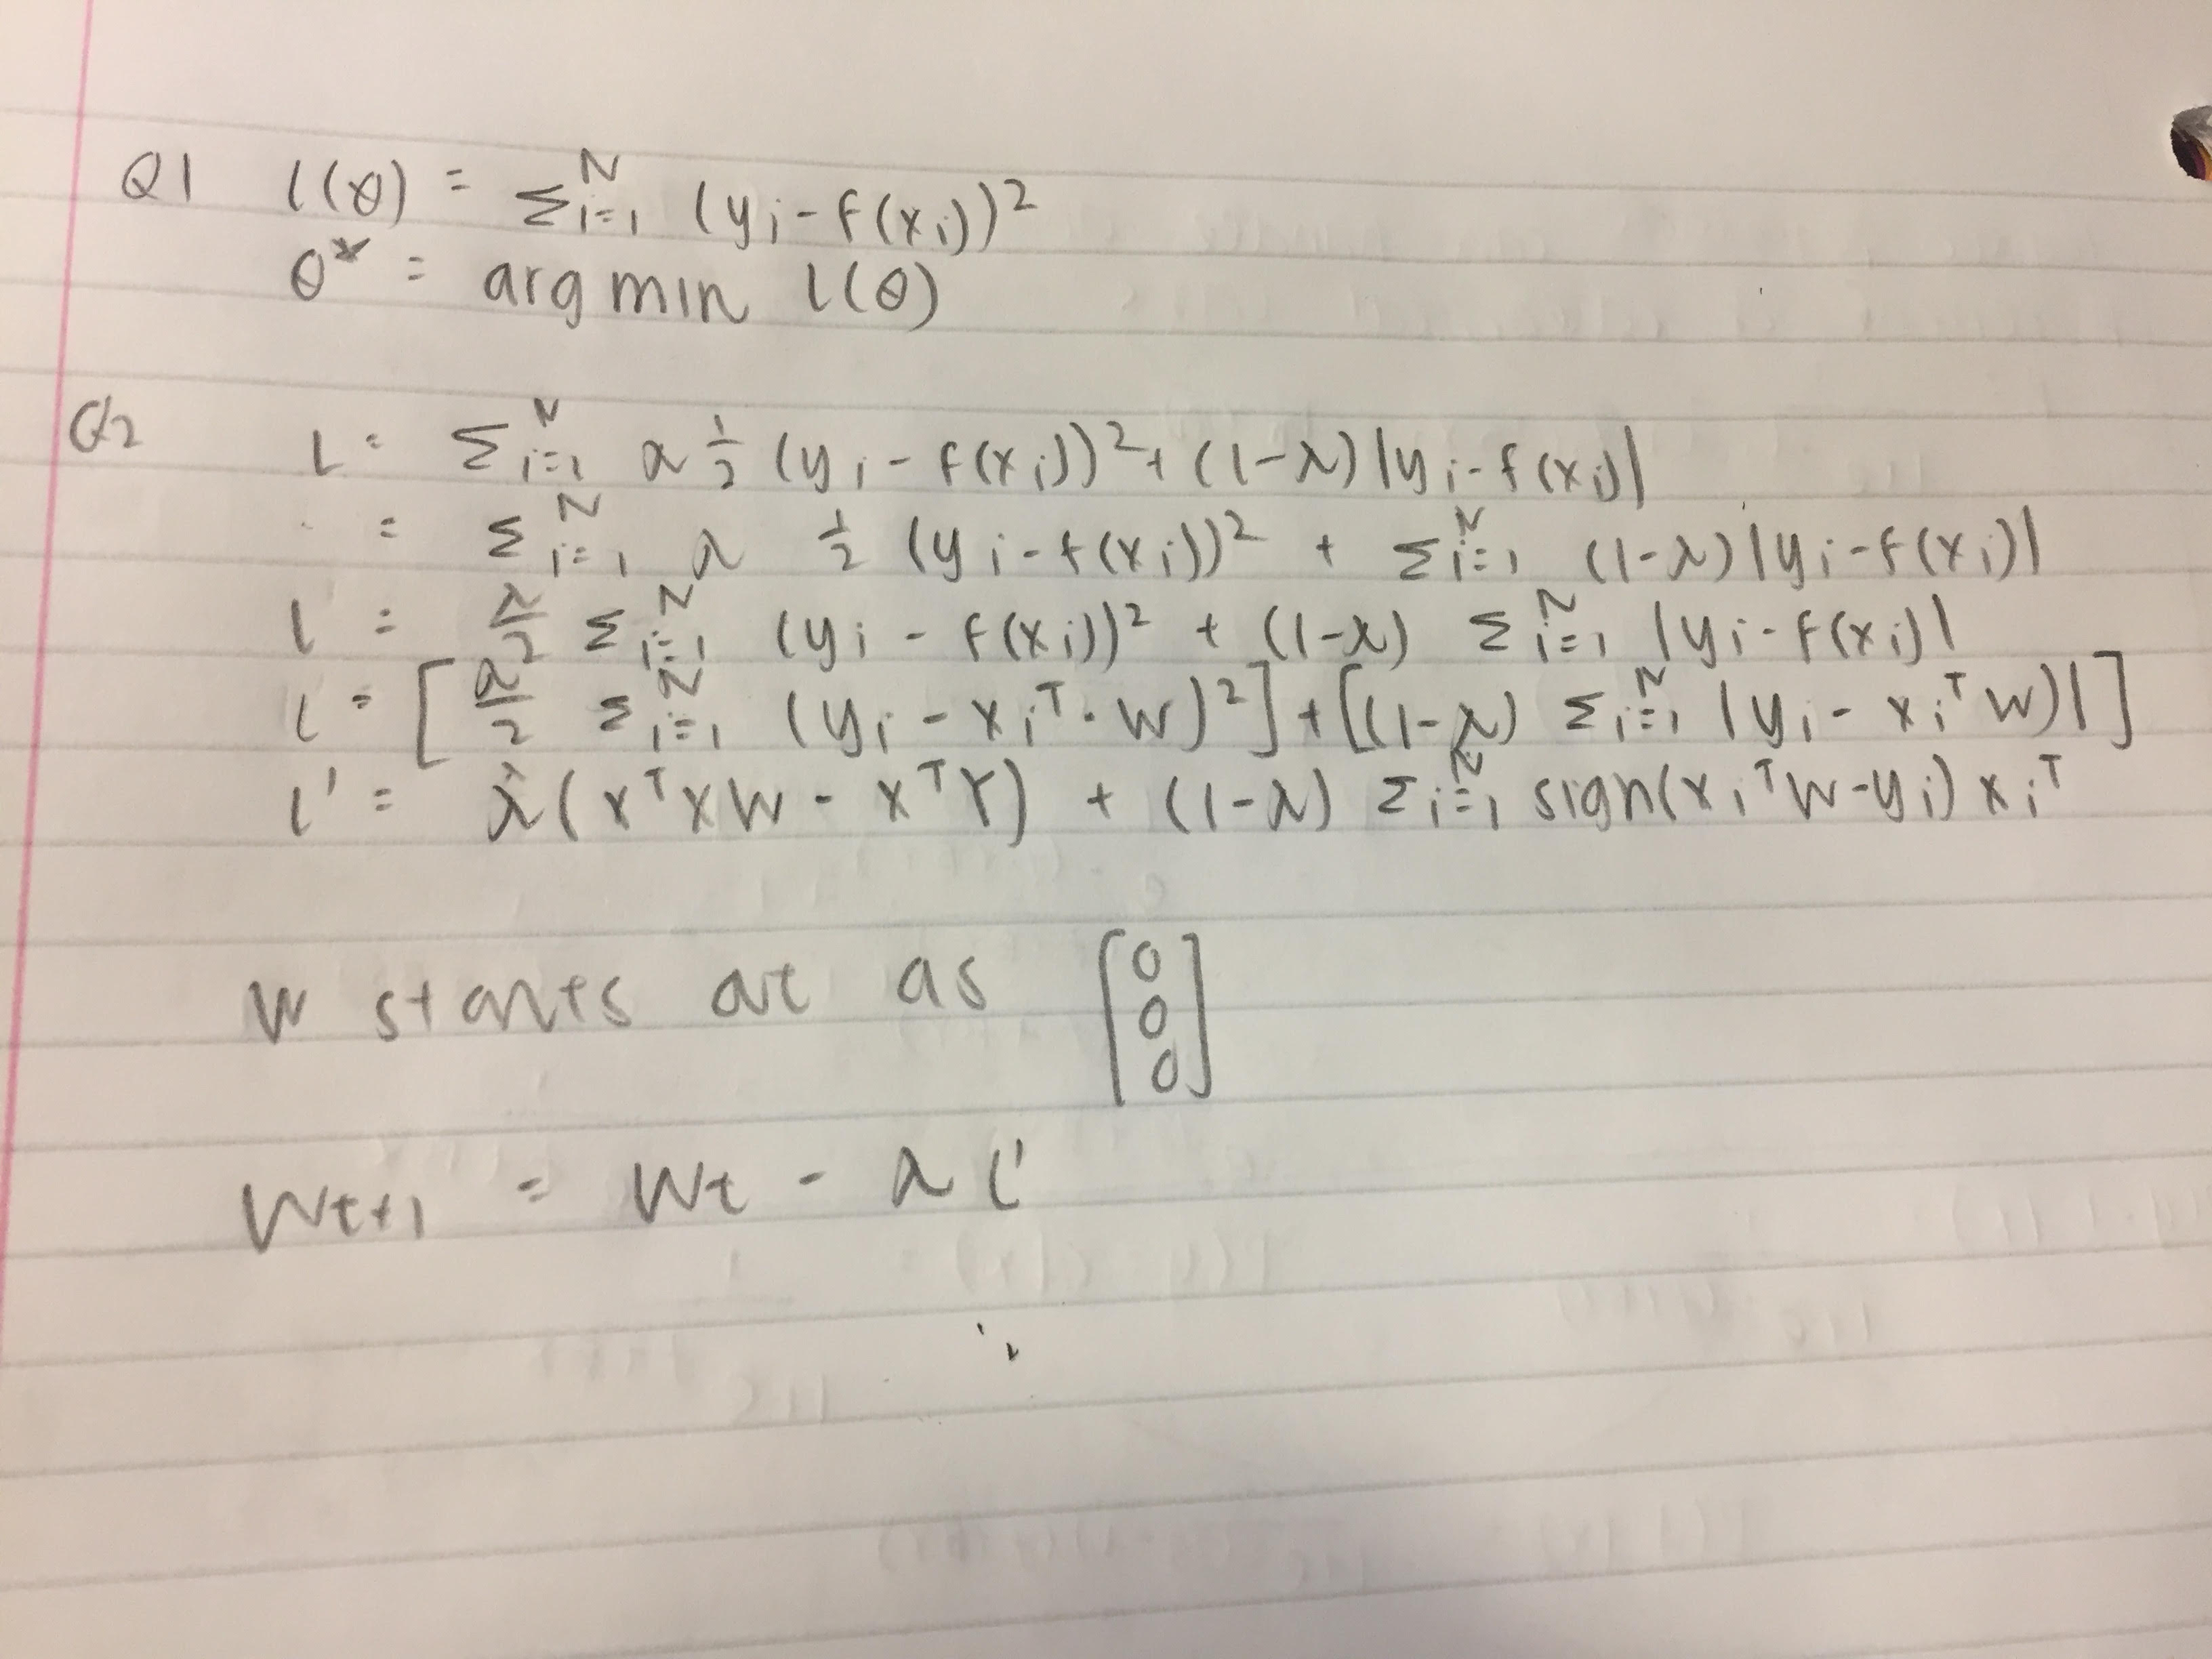 Q1 l(θ) = Σ_{i=1}^N (y_i - f(x_i))^2
θ* = arg min l(θ)
Q2 L = Σ_{i=1}^N λ 1/2 (y_i - f(x_i))^2 + (1-λ) |y_i - f(x_i)|
= Σ_{i=1}^N λ 1/2 (y_i - f(x_i))^2 + Σ_{i=1}^N (1-λ) |y_i - f(x_i)|
l = λ/2 Σ_{i=1}^N (y_i - f(x_i))^2 + (1-λ) Σ_{i=1}^N |y_i - f(x_i)|
l = [λ/2 Σ_{i=1}^N (y_i - x_i^T · w)^2] + [(1-λ) Σ_{i=1}^N |y_i - x_i^T w)|]
l' = λ(x^T x w - x^T Y) + (1-λ) Σ_{i=1}^N sign(x_i^T w - y_i) x_i^T
w starts at as [0 0 0]
w_{t+1} = w_t - λ l'